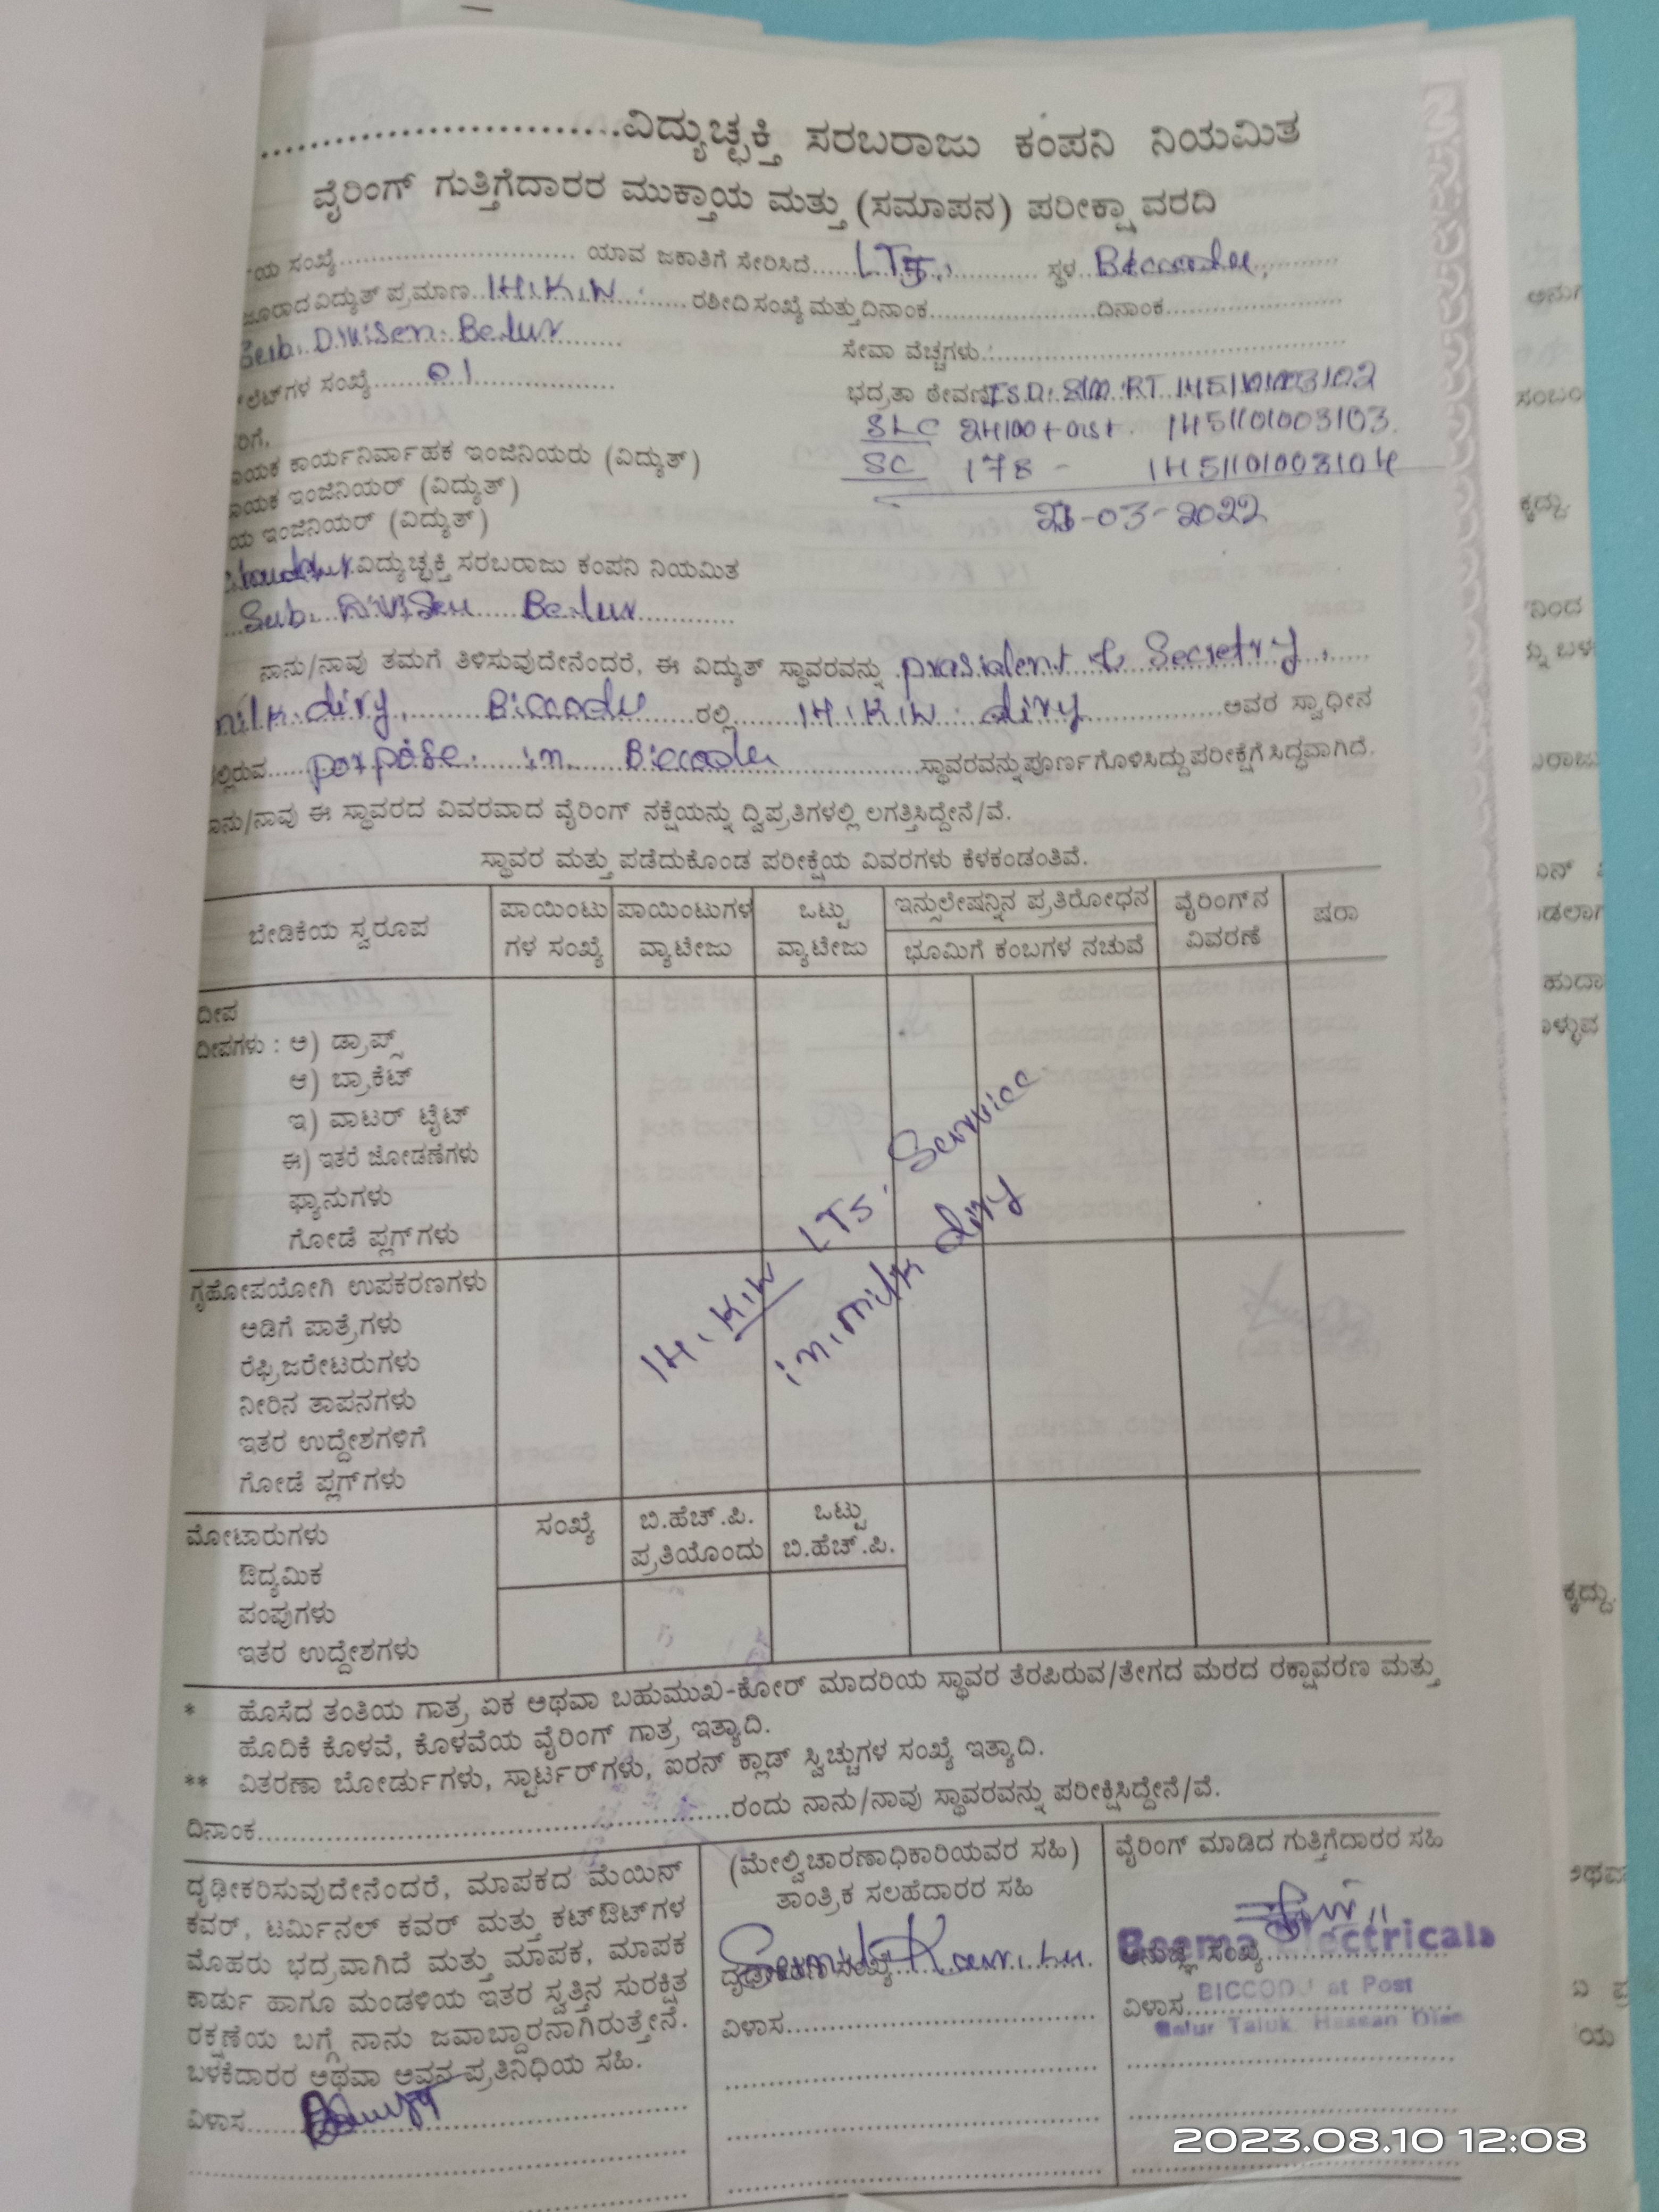 .............................ವಿದ್ಯುಚ್ಛಕ್ತಿ ಸರಬರಾಜು ಕಂಪನಿ ನಿಯಮಿತ
ವೈರಿಂಗ್ ಗುತ್ತಿಗೆದಾರರ ಮುಕ್ತಾಯ ಮತ್ತು (ಸಮಾಪನ) ಪರೀಕ್ಷಾ ವರದಿ
ಯ ಸಂಖ್ಯೆ............................ ಯಾವ ಜಕಾತಿಗೆ ಸೇರಿಸಿದೆ.....LT5........... ಸ್ಥಳ..Biccodu...........
ಜೂರಾದ ವಿದ್ಯುತ್ ಪ್ರಮಾಣ..14.K.W.........ರಶೀದಿ ಸಂಖ್ಯೆ ಮತ್ತು ದಿನಾಂಕ....................ದಿನಾಂಕ.....................
Sub. Divisen. Belur...........
ಸೇವಾ ವೆಚ್ಚಗಳು.:...........................................
ಲೆಟ್‌ಗಳ ಸಂಖ್ಯೆ.......01.................
ಭದ್ರತಾ ಠೇವಣಿ 1451101003102
SLC 24100 + 1451101003103.
SC 178 - 1451101003104
-03-2022
ರಿಗೆ,
ಾಯಕ ಕಾರ್ಯನಿರ್ವಾಹಕ ಇಂಜಿನಿಯರು (ವಿದ್ಯುತ್)
ಾಯಕ ಇಂಜಿನಿಯರ್ (ವಿದ್ಯುತ್)
ಯ ಇಂಜಿನಿಯರ್ (ವಿದ್ಯುತ್)
.ವಿದ್ಯುಚ್ಛಕ್ತಿ ಸರಬರಾಜು ಕಂಪನಿ ನಿಯಮಿತ
Sub. Divisen Belur............
ನಾನು/ನಾವು ತಮಗೆ ತಿಳಿಸುವುದೇನೆಂದರೆ, ಈ ವಿದ್ಯುತ್ ಸ್ಥಾವರವನ್ನು prasident & Secretry.
milk diry, Biccodu .....ರಲ್ಲಿ..... 14.K.W. diry ...............ಅವರ ಸ್ವಾಧೀನ
ಲ್ಲಿರುವ.....porpose. in. Biccodu ................ಸ್ಥಾವರವನ್ನು ಪೂರ್ಣಗೊಳಿಸಿದ್ದು ಪರೀಕ್ಷೆಗೆ ಸಿದ್ಧವಾಗಿದೆ.
ಾನು/ನಾವು ಈ ಸ್ಥಾವರದ ವಿವರವಾದ ವೈರಿಂಗ್ ನಕ್ಷೆಯನ್ನು ದ್ವಿಪ್ರತಿಗಳಲ್ಲಿ ಲಗತ್ತಿಸಿದ್ದೇನೆ/ವೆ.
ಸ್ಥಾವರ ಮತ್ತು ಪಡೆದುಕೊಂಡ ಪರೀಕ್ಷೆಯ ವಿವರಗಳು ಕೆಳಕಂಡಂತಿವೆ.
ಬೇಡಿಕೆಯ ಸ್ವರೂಪ
ಪಾಯಿಂಟು
ಗಳ ಸಂಖ್ಯೆ
ಪಾಯಿಂಟುಗಳ
ವ್ಯಾಟೇಜು
ಒಟ್ಟು
ವ್ಯಾಟೇಜು
ಇನ್ಸುಲೇಷನ್ನಿನ ಪ್ರತಿರೋಧನ
ಭೂಮಿಗೆ ಕಂಬಗಳ ನಡುವೆ
ವೈರಿಂಗ್‌ನ
ವಿವರಣೆ
ಷರಾ
ದೀಪ
ದೀಪಗಳು : ಅ) ಡ್ರಾಪ್ಸ್
ಆ) ಬ್ರಾಕೆಟ್
ಇ) ವಾಟರ್ ಟೈಟ್
ಈ) ಇತರೆ ಜೋಡಣೆಗಳು
ಫ್ಯಾನುಗಳು
ಗೋಡೆ ಪ್ಲಗ್‌ಗಳು
14.K.W LT5. Service
in. milk diry
ಗೃಹೋಪಯೋಗಿ ಉಪಕರಣಗಳು
ಅಡಿಗೆ ಪಾತ್ರೆಗಳು
ರೆಫ್ರಿಜರೇಟರುಗಳು
ನೀರಿನ ತಾಪನಗಳು
ಇತರ ಉದ್ದೇಶಗಳಿಗೆ
ಗೋಡೆ ಪ್ಲಗ್‌ಗಳು
ಮೋಟಾರುಗಳು
ಔದ್ಯಮಿಕ
ಪಂಪುಗಳು
ಇತರ ಉದ್ದೇಶಗಳು
ಸಂಖ್ಯೆ
ಬಿ.ಹೆಚ್.ಪಿ.
ಪ್ರತಿಯೊಂದು
ಒಟ್ಟು
ಬಿ.ಹೆಚ್.ಪಿ.
* ಹೊಸೆದ ತಂತಿಯ ಗಾತ್ರ, ಏಕ ಅಥವಾ ಬಹುಮುಖ-ಕೋರ್ ಮಾದರಿಯ ಸ್ಥಾವರ ತೆರಪಿರುವ/ತೇಗದ ಮರದ ರಕ್ಷಾವರಣ ಮತ್ತು
ಹೊದಿಕೆ ಕೊಳವೆ, ಕೊಳವೆಯ ವೈರಿಂಗ್ ಗಾತ್ರ ಇತ್ಯಾದಿ.
** ವಿತರಣಾ ಬೋರ್ಡುಗಳು, ಸ್ಟಾರ್ಟರ್‌ಗಳು, ಐರನ್ ಕ್ಲಾಡ್ ಸ್ವಿಚ್ಚುಗಳ ಸಂಖ್ಯೆ ಇತ್ಯಾದಿ.
ದಿನಾಂಕ......................................................ರಂದು ನಾನು/ನಾವು ಸ್ಥಾವರವನ್ನು ಪರೀಕ್ಷಿಸಿದ್ದೇನೆ/ವೆ.
ದೃಢೀಕರಿಸುವುದೇನೆಂದರೆ, ಮಾಪಕದ ಮೆಯಿನ್
ಕವರ್, ಟರ್ಮಿನಲ್ ಕವರ್ ಮತ್ತು ಕಟ್‌ಔಟ್‌ಗಳ
ಮೊಹರು ಭದ್ರವಾಗಿದೆ ಮತ್ತು ಮಾಪಕ, ಮಾಪಕ
ಕಾರ್ಡು ಹಾಗೂ ಮಂಡಳಿಯ ಇತರ ಸ್ವತ್ತಿನ ಸುರಕ್ಷಿತ
ರಕ್ಷಣೆಯ ಬಗ್ಗೆ ನಾನು ಜವಾಬ್ದಾರನಾಗಿರುತ್ತೇನೆ.
ಬಳಕೆದಾರರ ಅಥವಾ ಅವನ ಪ್ರತಿನಿಧಿಯ ಸಹಿ.
ವಿಳಾಸ..........................................
(ಮೇಲ್ವಿಚಾರಣಾಧಿಕಾರಿಯವರ ಸಹಿ)
ತಾಂತ್ರಿಕ ಸಲಹೆದಾರರ ಸಹಿ
ದೃಢೀಕರಣ ಸಂಖ್ಯೆ
ವಿಳಾಸ...................................
ವೈರಿಂಗ್ ಮಾಡಿದ ಗುತ್ತಿಗೆದಾರರ ಸಹಿ
Beema Electricals
ಅನುಜ್ಞಾ ಸಂಖ್ಯೆ
BICCODU at Post
ವಿಳಾಸ................................
Belur Taluk. Hassan Dist
2023.08.10 12:08